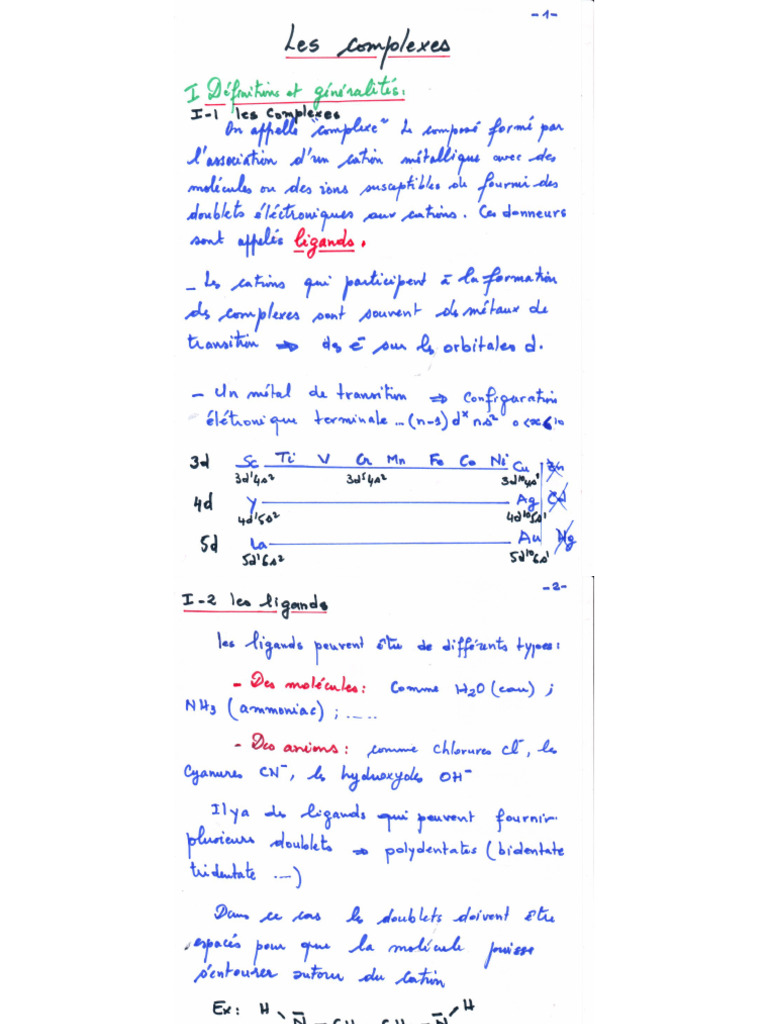 -1-
Les complexes
I Définitions et généralités:
I-1 les complexes
On appelle "complexe" le composé formé par
l'association d'un cation métallique avec des
molécules ou des ions susceptibles de fourni des
doublets éléctroniques aux cations. Ces donneurs
sont appelés ligands.
- Les cations qui participent à la formation
des complexes sont souvent des métaux de
transition ⇒ des e⁻ sur les orbitales d.
- Un métal de transition ⇒ configuration
élétronique terminale ... (n-1) dˣ ns² 0<x≤10
3d Sc Ti V Cr Mn Fe Co Ni Cu Zn
3d¹4s² 3d⁵4s² 3d¹⁰4s¹
4d Y Ag Cd
4d¹5s² 4d¹⁰5s¹
5d La Au Hg
5d¹6s² 5d¹⁰6s¹
-2-
I-2 les ligands
les ligands peuvent être de différents types:
- Des molécules: comme H₂O (eau) ;
NH₃ (ammoniac) ; .....
- Des anions: comme chlorures Cl⁻, les
cyanures CN⁻, les hydroxydes OH⁻
Il ya des ligands qui peuvent fournir
plusieurs doublets ⇒ polydentates (bidentate
tridentate ....)
Dans ce cas les doublets doivent être
espacés pour que la molécule puisse
s'entourer autour du cation
Ex: H H
N CH CH N